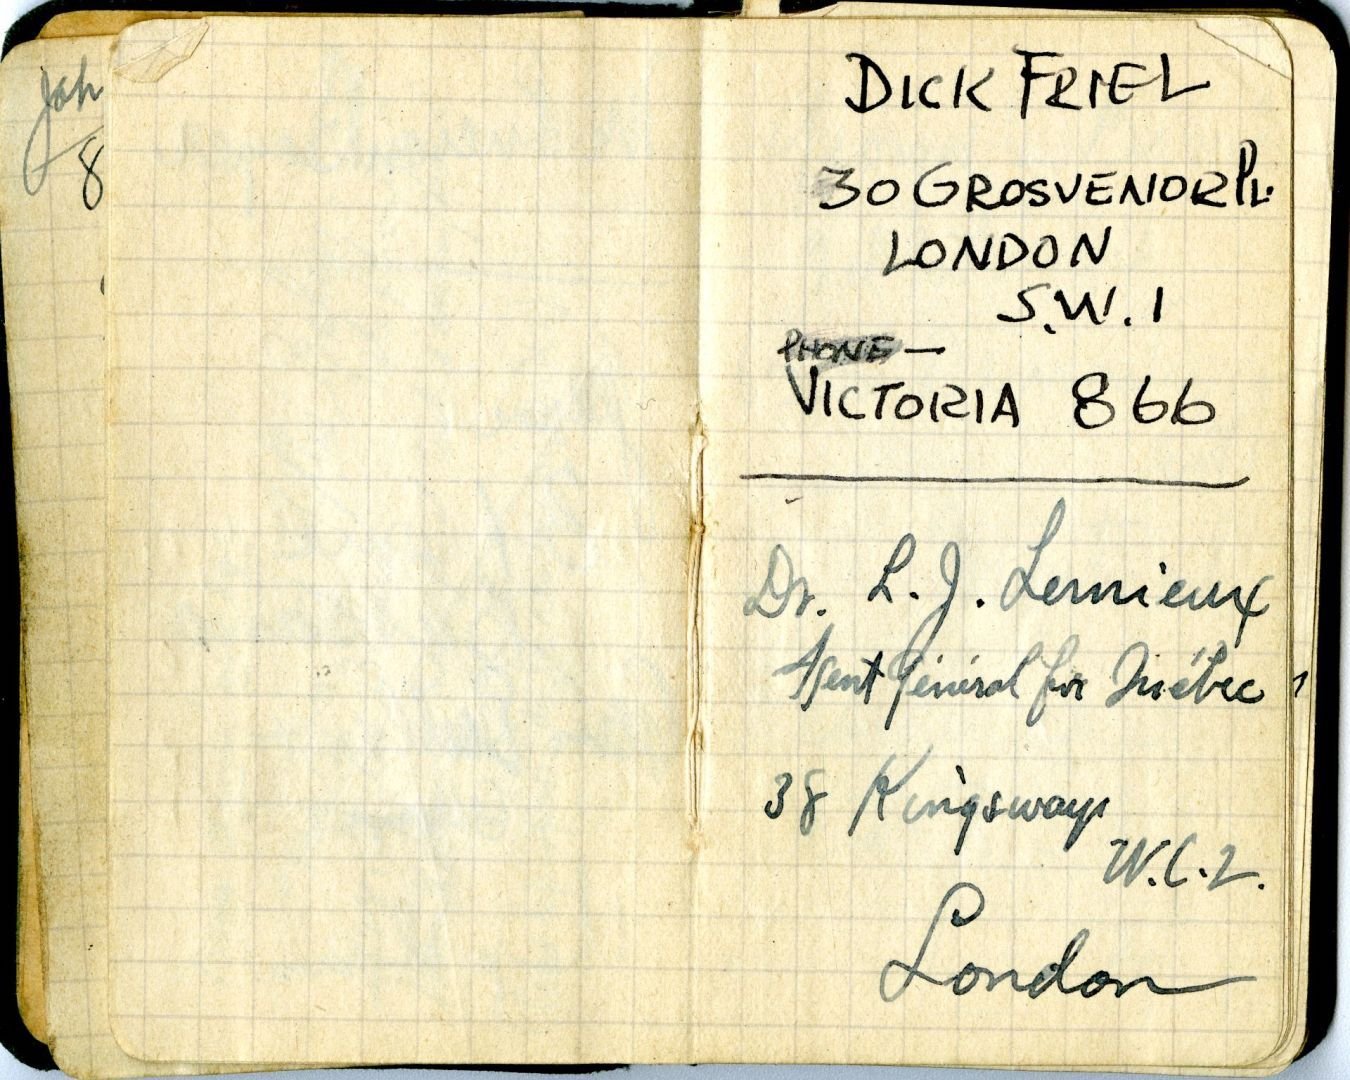 Joh
8
DICK FRIEL
30 GROSVENOR PL.
LONDON
S.W. 1
PHONE —
VICTORIA 866
Dr. L. J. Lemieux
Agent Général for Québec
38 Kingsway
W.C.2.
London